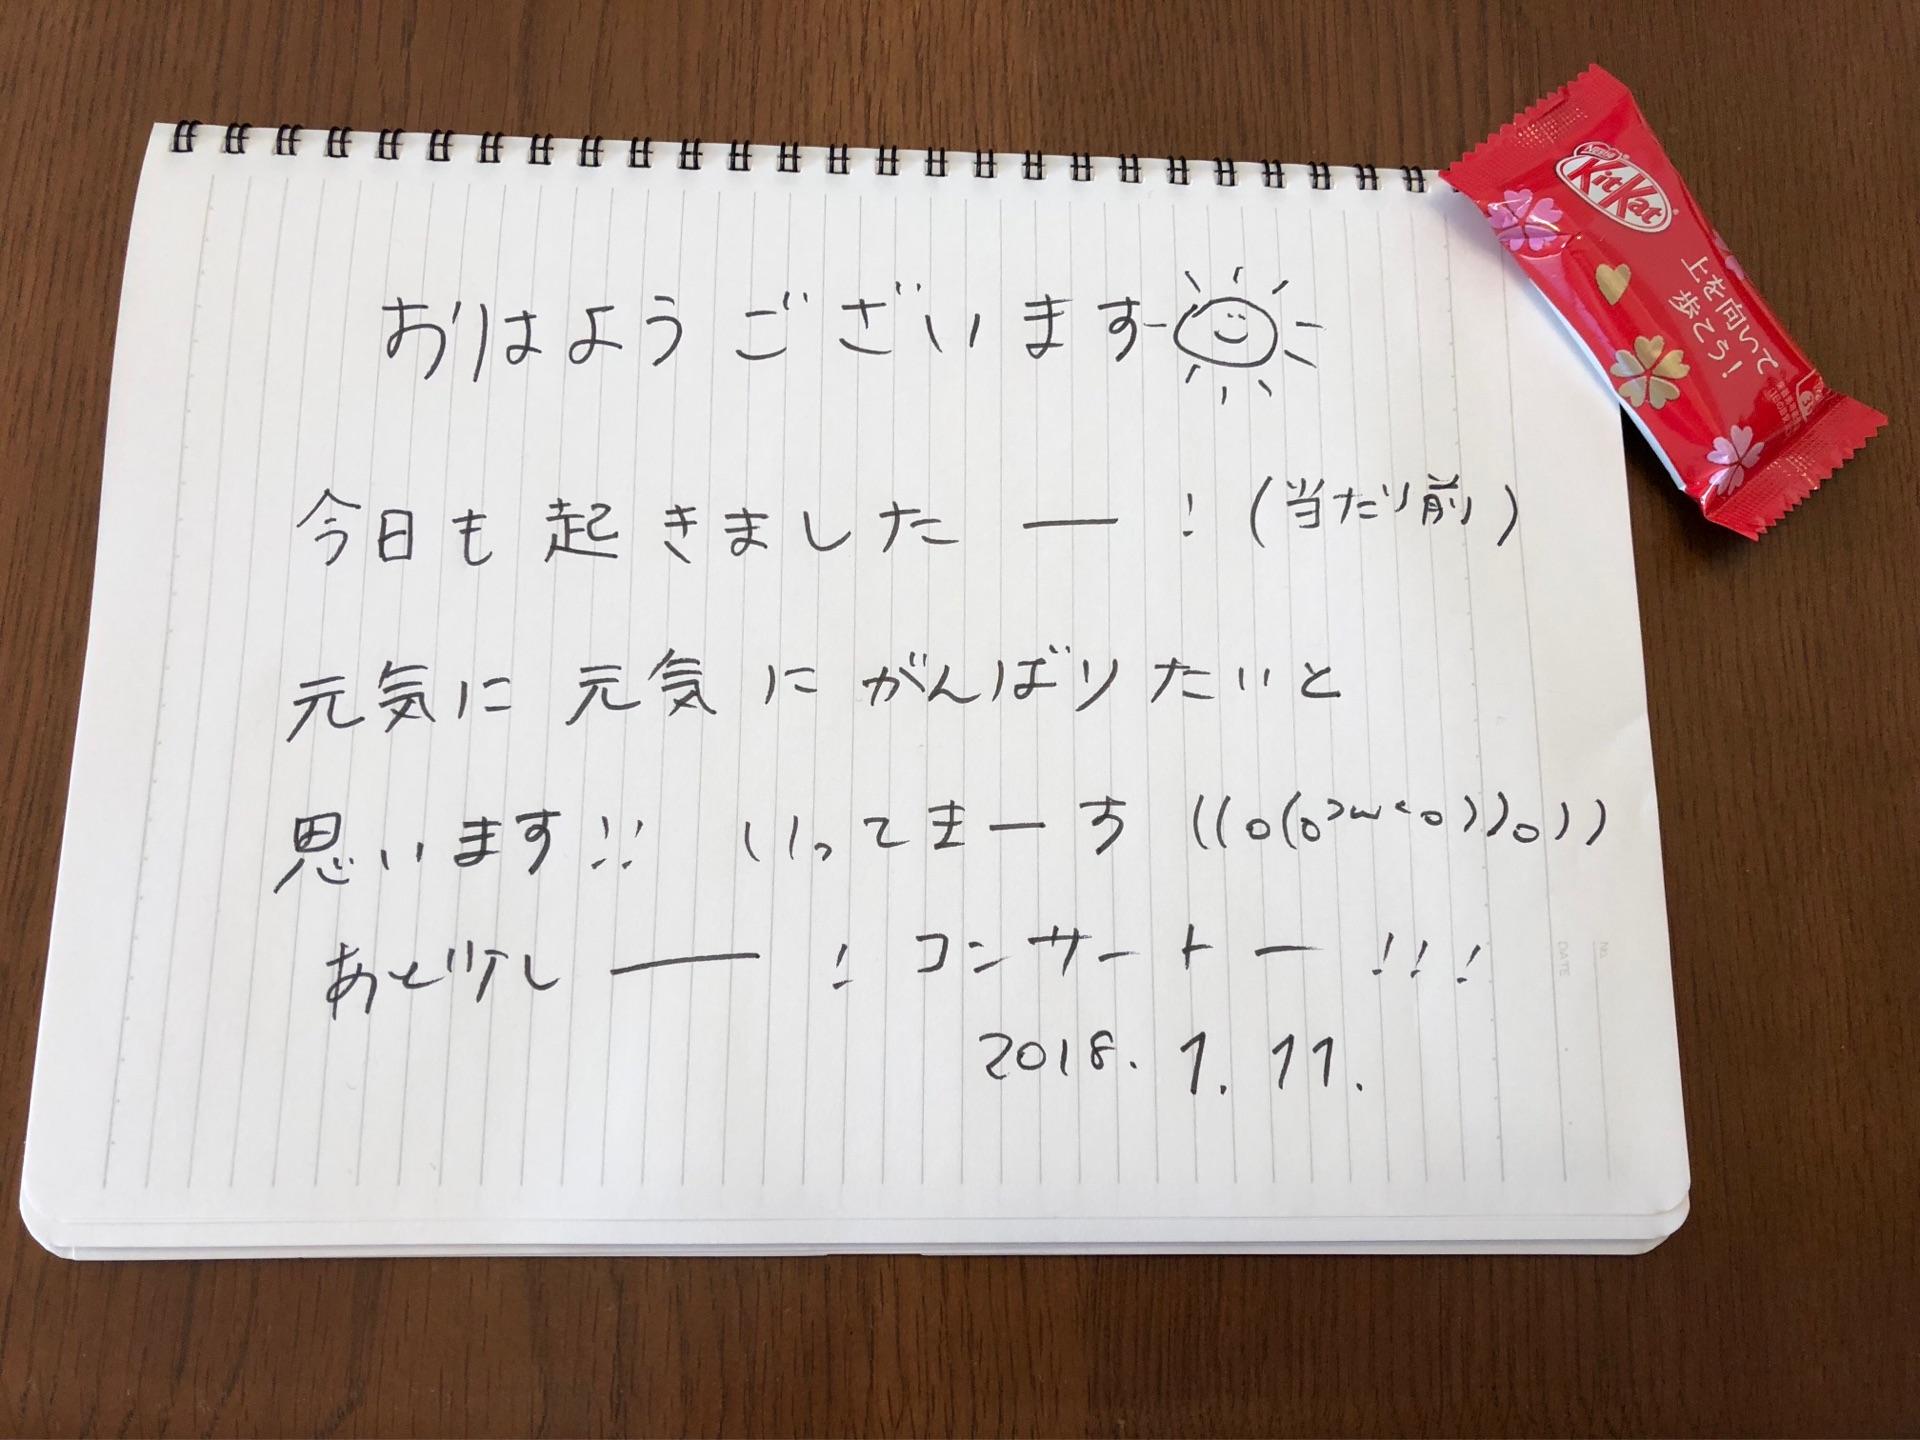 おはようございます
今日も起きましたー!(当たり前)
元気に元気にがんばりたいと
思います!! いってまーす ((o(o>ω<o))o))
あと少しー! コンサートー!!!
2018. 1. 11.
Nestlé
KitKat
上を向いて
歩こう!
No.
DATE